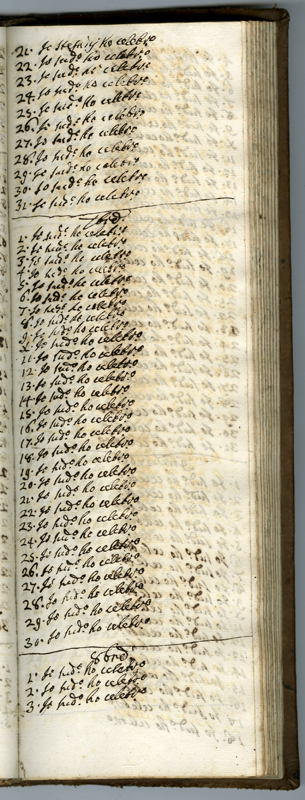 21. Io ho celebro
22. Io sud.o ho celebro
23. Io sud.o ho celebro
24. Io sud.o ho celebro
25. Io sud.o ho celebro
26. Io sud.o ho celebro
27. Io sud.o ho celebro
28. Io sud.o ho celebro
29. Io sud.o ho celebro
30. Io sud.o ho celebro
31. Io sud.o ho celebro
7bre
1. Io sud.o ho celebro
2. Io sud.o ho celebro
3. Io sud.o ho celebro
4. Io sud.o ho celebro
5. Io sud.o ho celebro
6. Io sud.o ho celebro
7. Io sud.o ho celebro
8. Io sud.o ho celebro
9. Io sud.o ho celebro
10. Io sud.o ho celebro
11. Io sud.o ho celebro
12. Io sud.o ho celebro
13. Io sud.o ho celebro
14. Io sud.o ho celebro
15. Io sud.o ho celebro
16. Io sud.o ho celebro
17. Io sud.o ho celebro
18. Io sud.o ho celebro
19. Io sud.o ho celebro
20. Io sud.o ho celebro
21. Io sud.o ho celebro
22. Io sud.o ho celebro
23. Io sud.o ho celebro
24. Io sud.o ho celebro
25. Io sud.o ho celebro
26. Io sud.o ho celebro
27. Io sud.o ho celebro
28. Io sud.o ho celebro
29. Io sud.o ho celebro
30. Io sud.o ho celebro
8bre
1. Io sud.o ho celebro
2. Io sud.o ho celebro
3. Io sud.o ho celebro